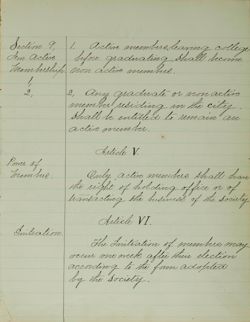 Section 9,
Non Active
Membership
1,
2,
1. Active members, leaving college
before graduating shall become
non active members.
2, Any graduate or non active
member residing in the city
shall be entitled to remain an
active member.
Article V.
Power of
Members.
Only active members shall have
the right of holding office or of
transacting the business of the Society.
Article VI.
Initiation.
The Initiation of members may
occur one week after their election
according to the form adopted
by the Society.